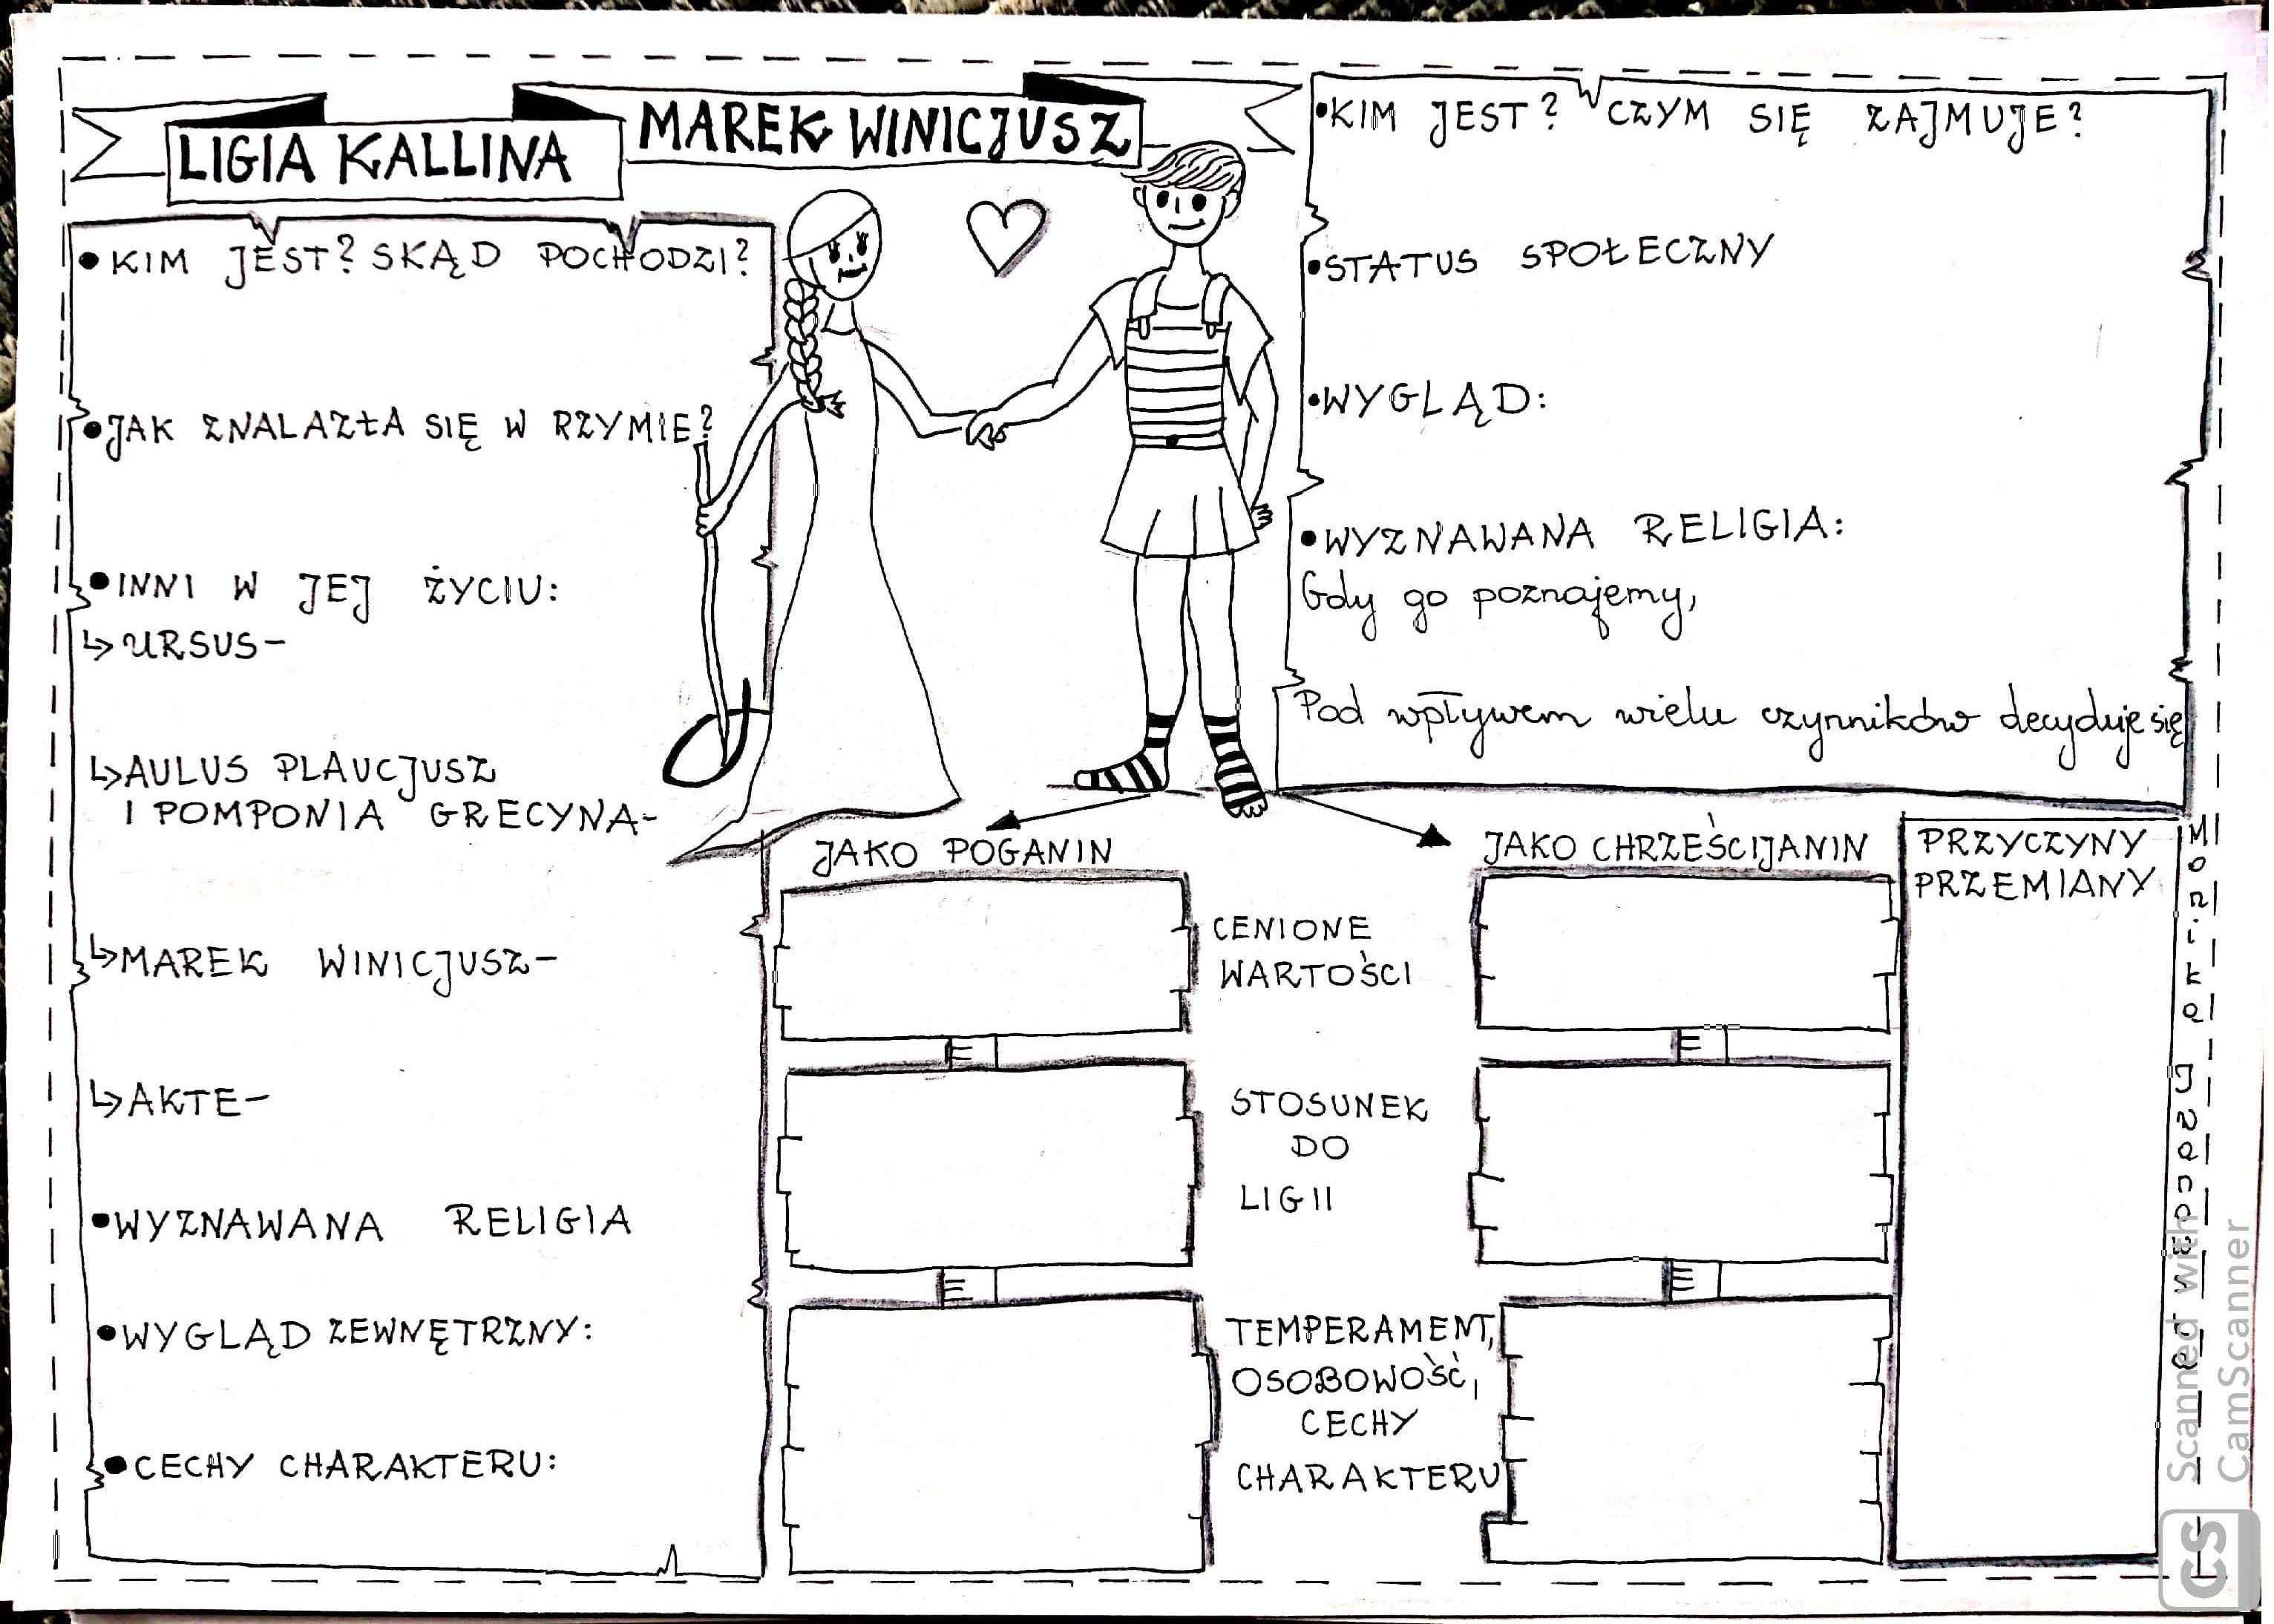 LIGIA KALLINA
MAREK WINICJUSZ
•KIM JEST? SKĄD POCHODZI?
•JAK ZNALAZŁA SIĘ W RZYMIE?
•INNI W JEJ ŻYCIU:
↳URSUS-
↳AULUS PLAUCJUSZ
I POMPONIA GRECYNA-
↳MAREK WINICJUSZ-
↳AKTE-
•WYZNAWANA RELIGIA
•WYGLĄD ZEWNĘTRZNY:
•CECHY CHARAKTERU:
•KIM JEST? CZYM SIĘ ZAJMUJE?
•STATUS SPOŁECZNY
•WYGLĄD:
•WYZNAWANA RELIGIA:
Gdy go poznajemy,
Pod wpływem wielu czynników decyduje się
JAKO POGANIN
JAKO CHRZEŚCIJANIN
CENIONE
WARTOŚCI
STOSUNEK
DO
LIGII
TEMPERAMENT,
OSOBOWOŚĆ,
CECHY
CHARAKTERU
PRZYCZYNY
PRZEMIANY
Monika
Scanned with
CamScanner
CS